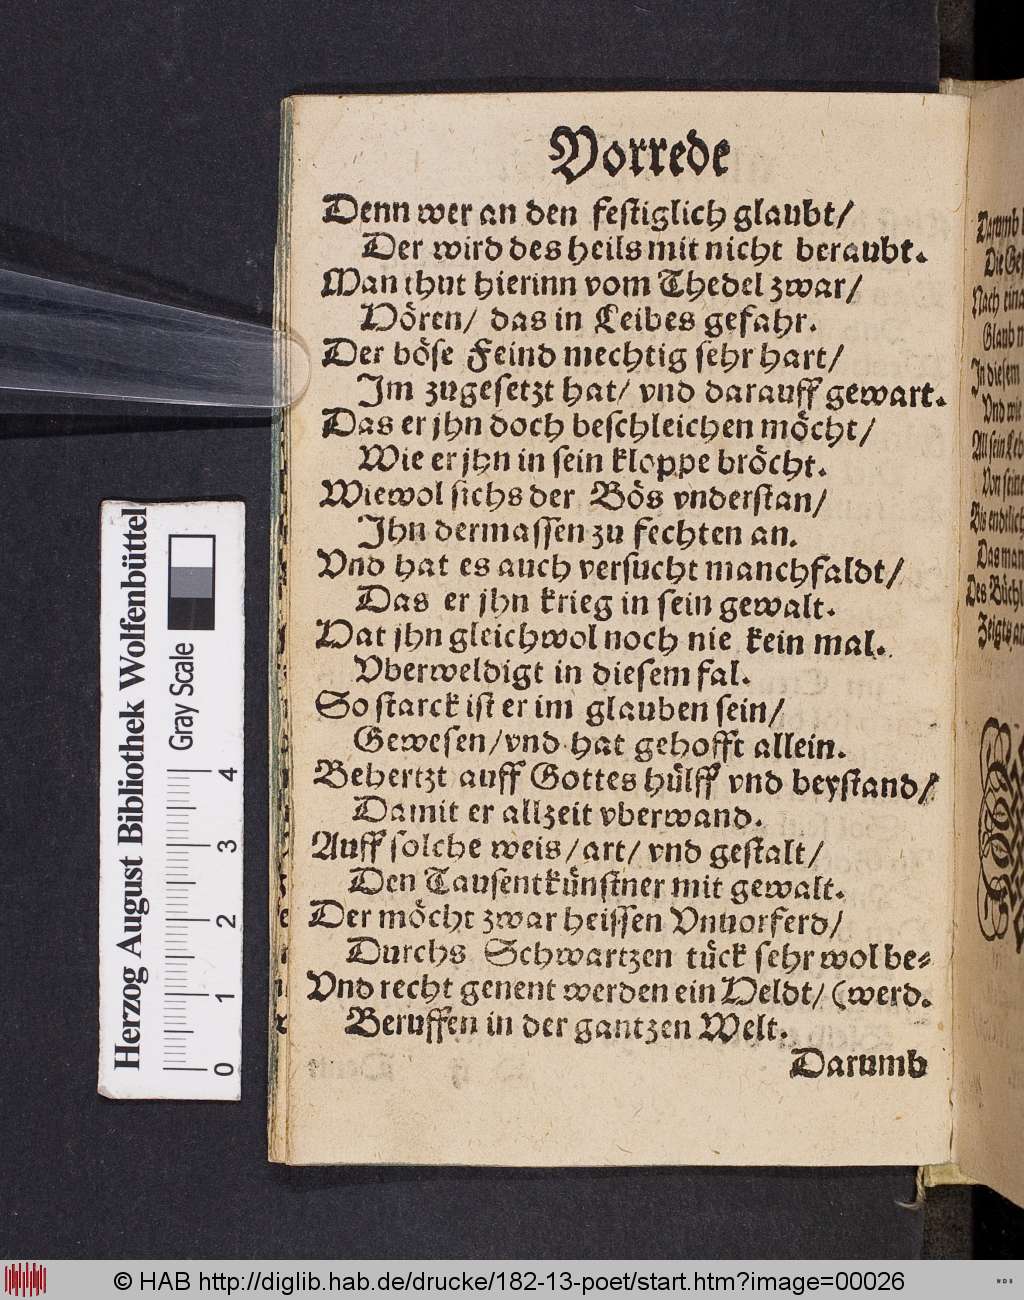 Vorrede
Denn wer an den festiglich glaubt/
Der wird des heils mit nicht beraubt.
Man thut hierinn vom Thedel zwar/
Hören/ das in Leibes gefahr.
Der böse Feind mechtig sehr hart/
Im zugesetzt hat/ vnd darauff gewart.
Das er jhn doch beschleichen möcht/
Wie er jhn in sein kloppe bröcht.
Wiewol sichs der Bös vnderstan/
Ihn dermassen zu fechten an.
Vnd hat es auch versucht manchfaldt/
Das er jhn krieg in sein gewalt.
Hat jhn gleichwol noch nie kein mal.
Vberweldigt in diesem fal.
So starck ist er im glauben sein/
Gewesen/ vnd hat gehofft allein.
Behertzt auff Gottes hülff vnd beystand/
Damit er allzeit vberwand.
Auff solche weis/ art/ vnd gestalt/
Den Tausentkünstner mit gewalt.
Der möcht zwar heissen Vnuorferd/
Durchs Schwartzen tück sehr wol be-
Vnd recht genent werden ein Heldt/ (werd.
Beruffen in der gantzen Welt.
Darumb
Darumb
Die
Nach
Glaub
In diesem
Vnd wie
All sein
Von seine
Bis endlich
Das man
Des Büchl
Zeigts
Herzog August Bibliothek Wolfenbüttel
Gray Scale
0 1 2 3 4
© HAB http://diglib.hab.de/drucke/182-13-poet/start.htm?image=00026
WDB